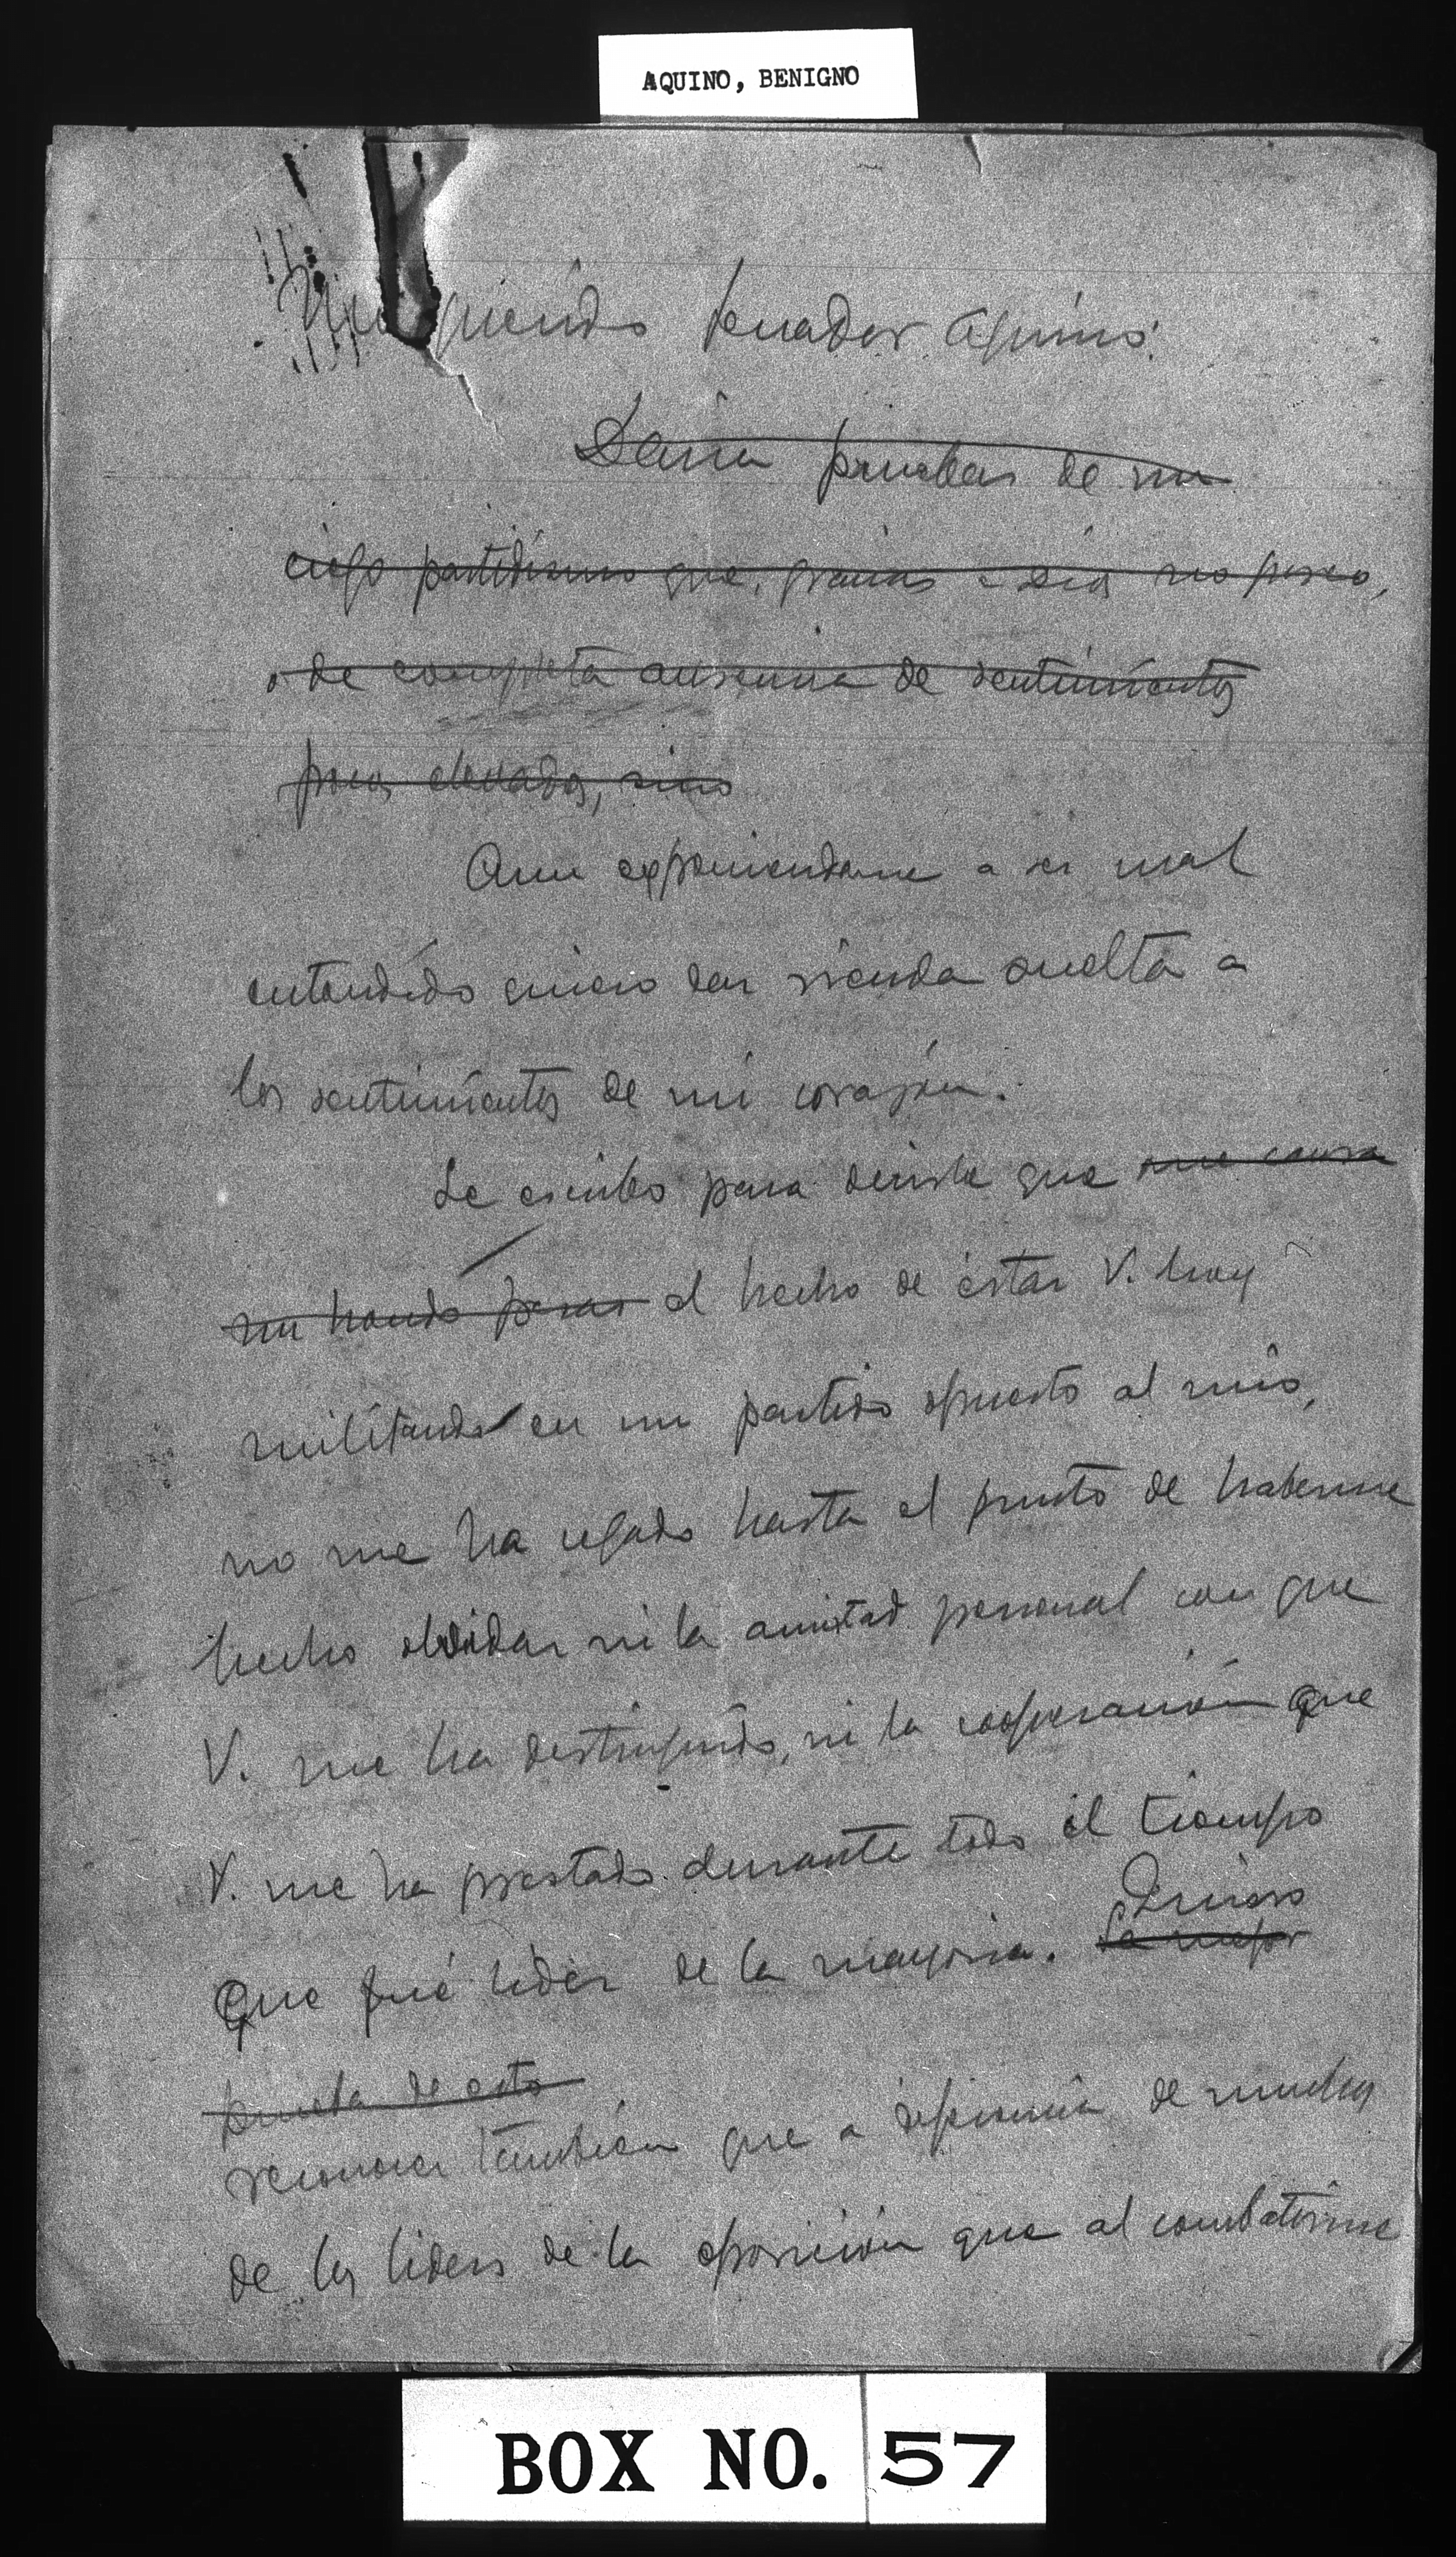 AQUINO, BENIGNO
Mi querido Senador Aquino:
Daría pruebas de un
ciego partidismo que, gracias a Dios no poseo,
o de completa ausencia de sentimientos
poco elevados, sino
Aun exponiendome a ser mal
entendido quiero dar rienda suelta a
los sentimientos de mi corazón.
Le escribo para decirle que me causa
un hondo pesar el hecho de estar V. hoy
militando en un partido opuesto al mío,
no me ha cegado hasta el punto de haberme
hecho olvidar ni la amistad personal con que
V. me ha distinguido, ni la cooperación que
V. me ha prestado durante todo el tiempo
Quiero
que fué lider de la mayoria. La mejor
prueba de esto
reconocer también que a diferencia de muchos
de los liders de la oposición que al combatirme
BOX NO. 57